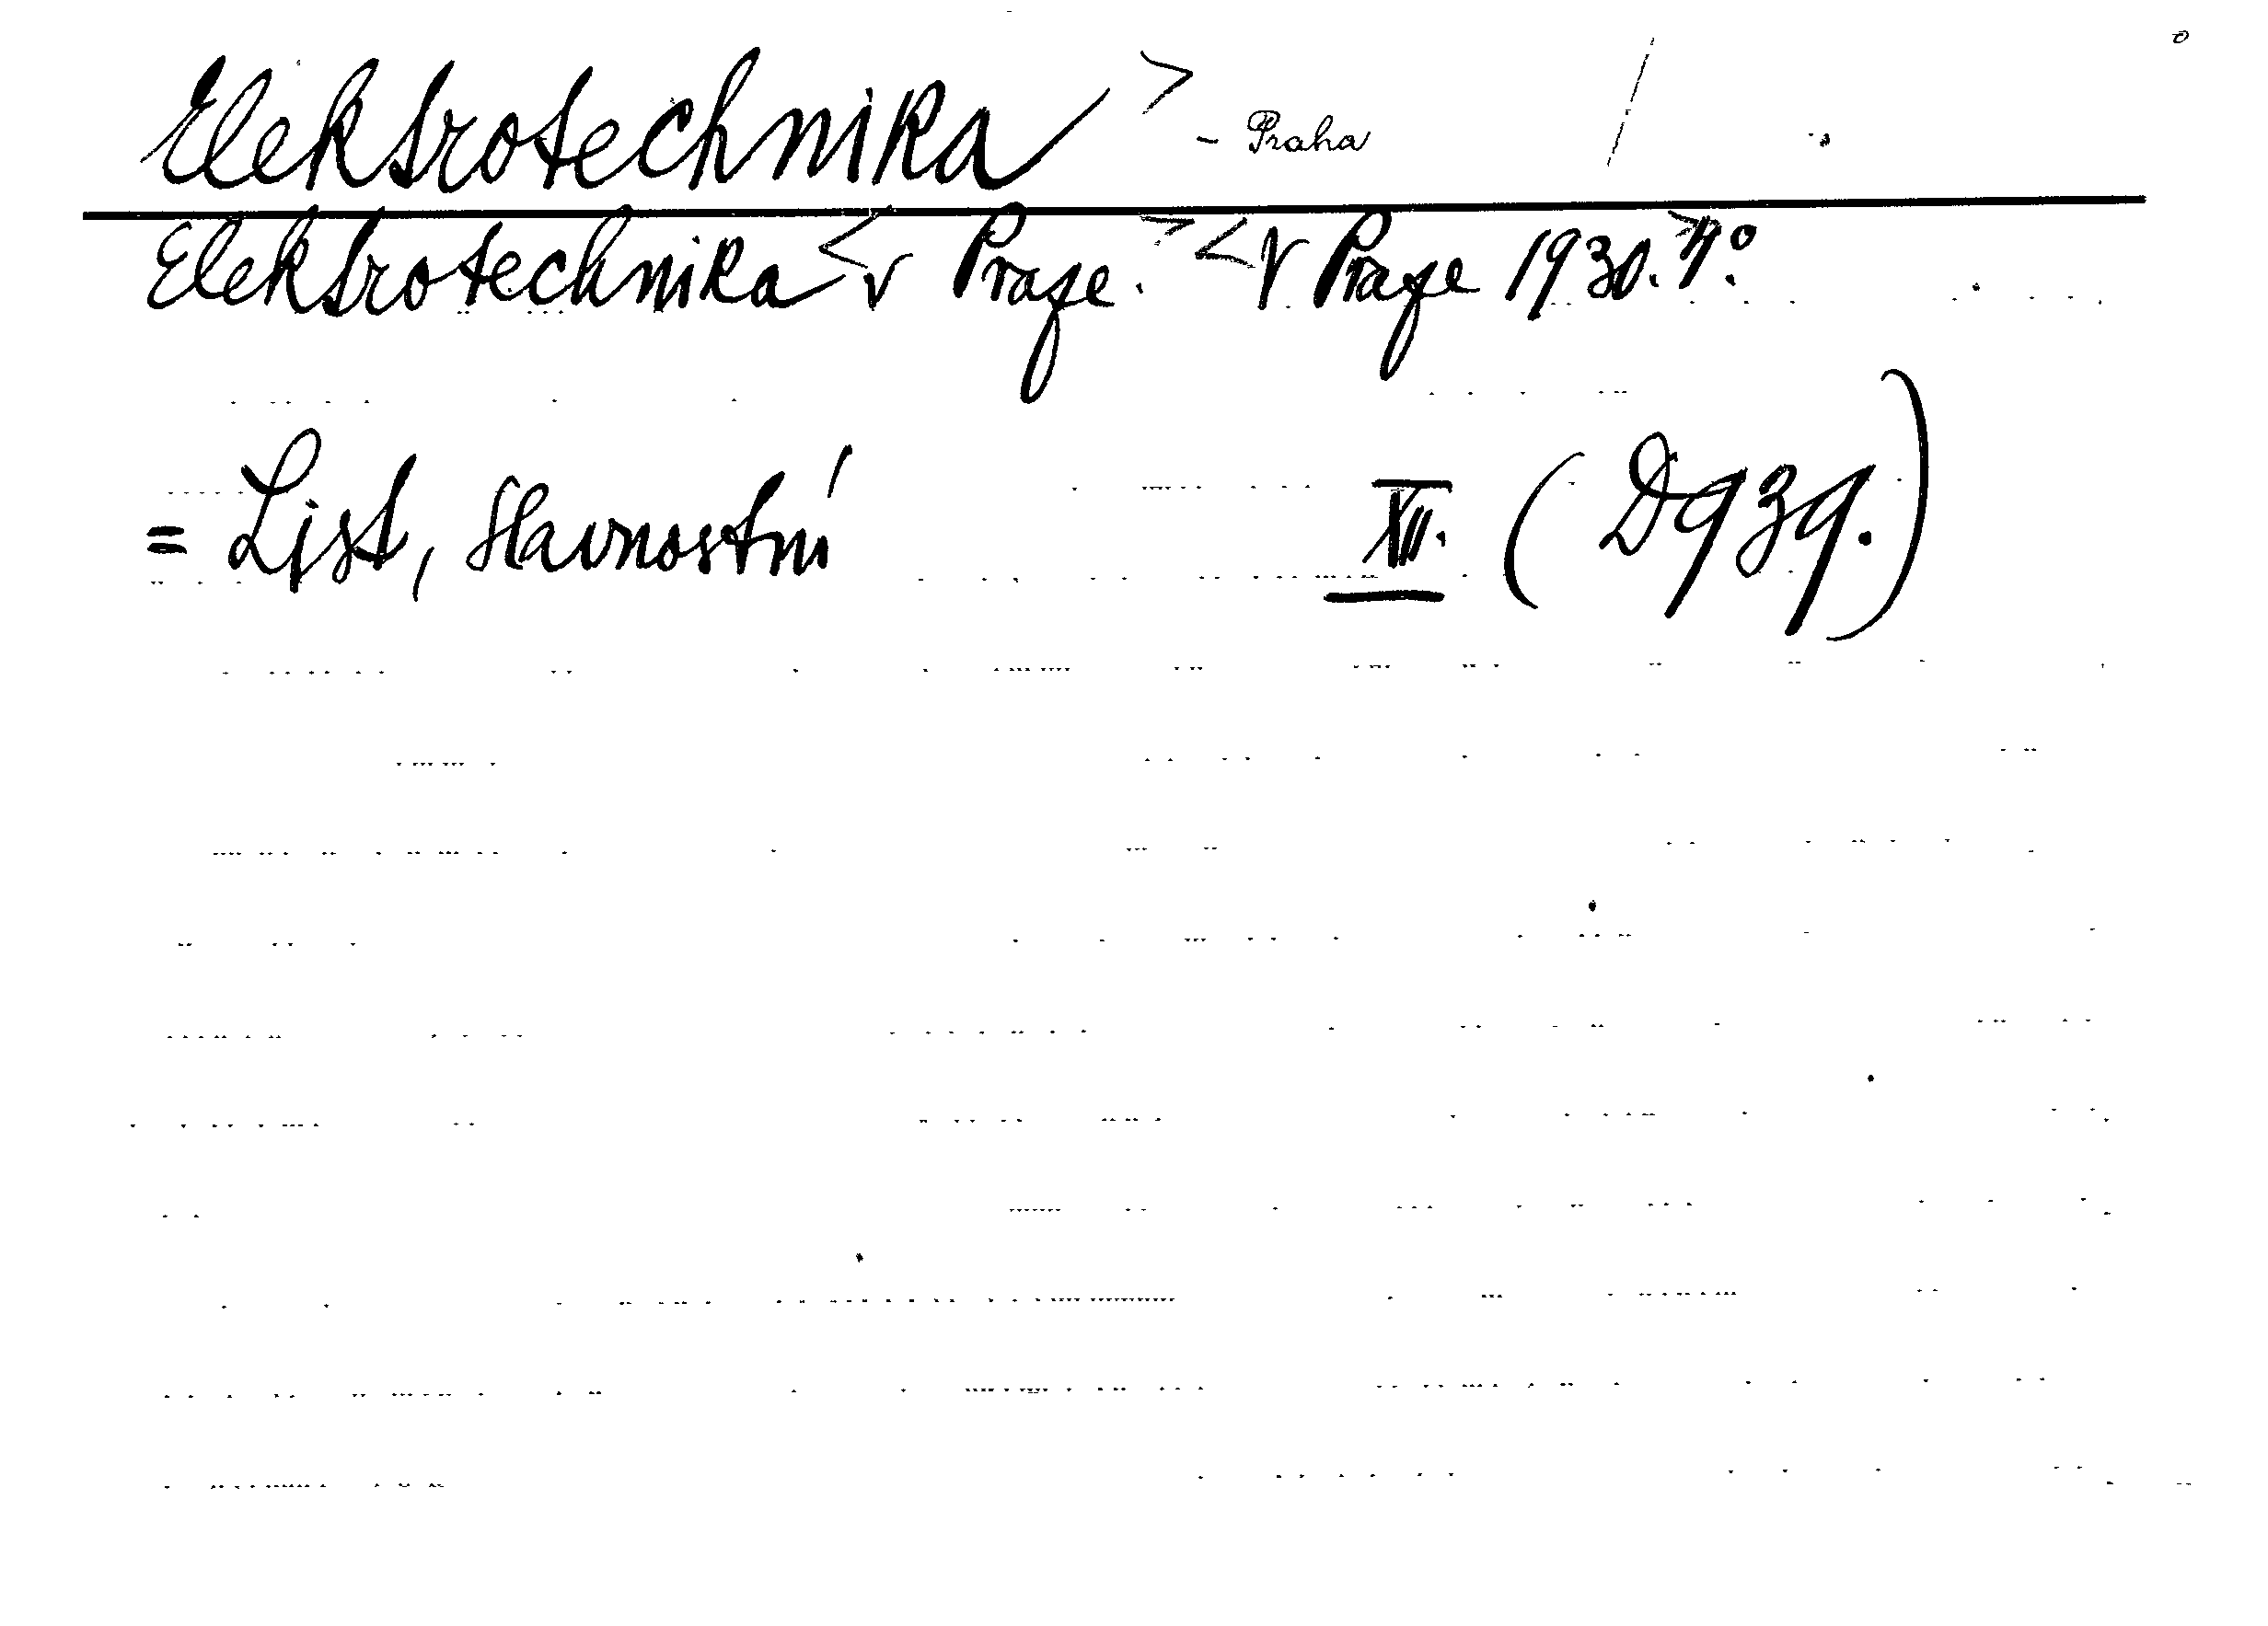 Elektrotechnika > - Praha
Elektrotechnika < v Praze. > < V Praze 1930. > 4°.
= List, slavnostní XII. (D939.)